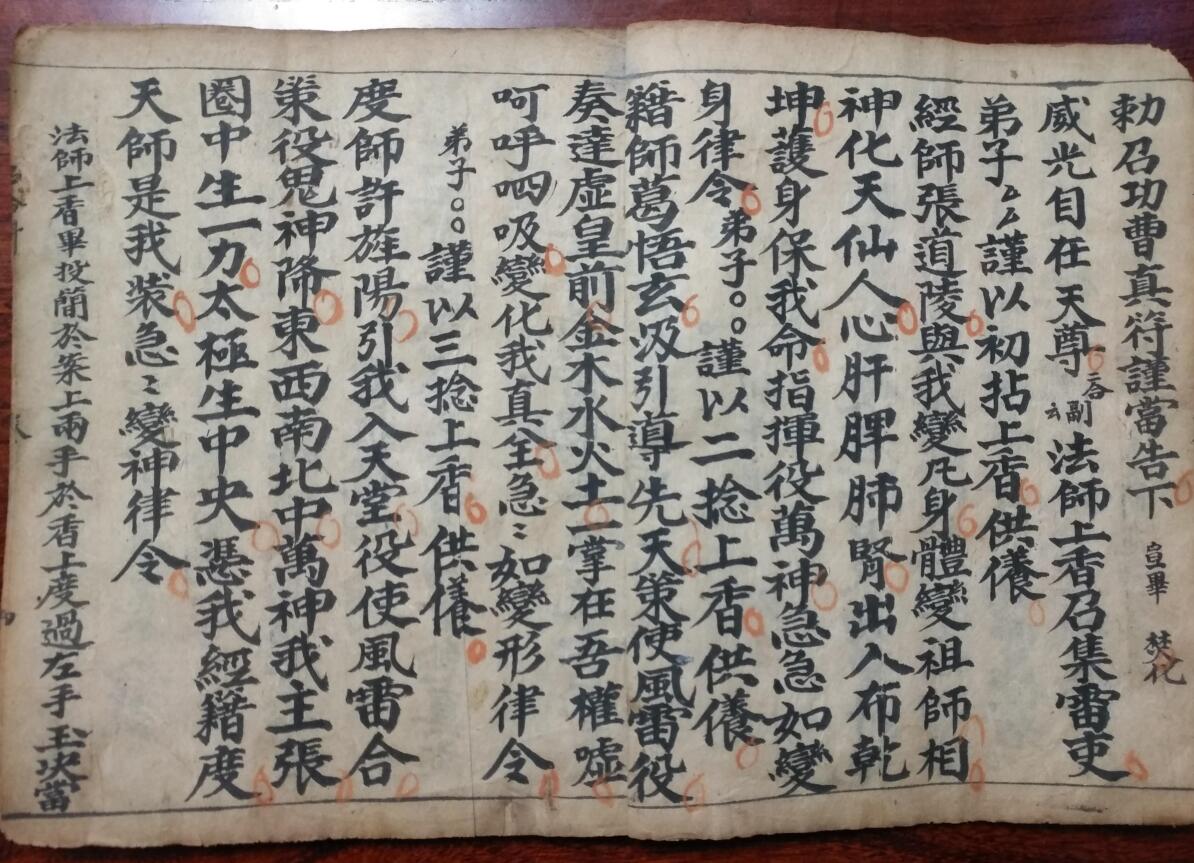 勅召功曹真符謹當告下 宣畢 焚化
威光自在天尊 二吝 副云 法師上香召集雷吏
弟子厶厶謹以初拈上香供養
經師張道陵與我變凡身體變祖師相
神化天仙人心肝脾肺腎出入布乾
坤護身保我命指揮役萬神急急如變
身律令 弟子○○謹以二捻上香供養
籍師葛悟玄汲引導先天策使風雷役
奏達虛皇前金木水火土一掌在吾權噓
呵呼呬吸變化我真全急〻如變形律令
弟子○○謹以三捻上香供養
度師許旌陽引我入天堂役使風雷合
策役鬼神降東西南北中萬神我主張
圈中生一力太極生中央憑我經籍度
天師是我裝急〻變神律令
法師上香畢投簡於案上兩手於香上度過左手玉決當